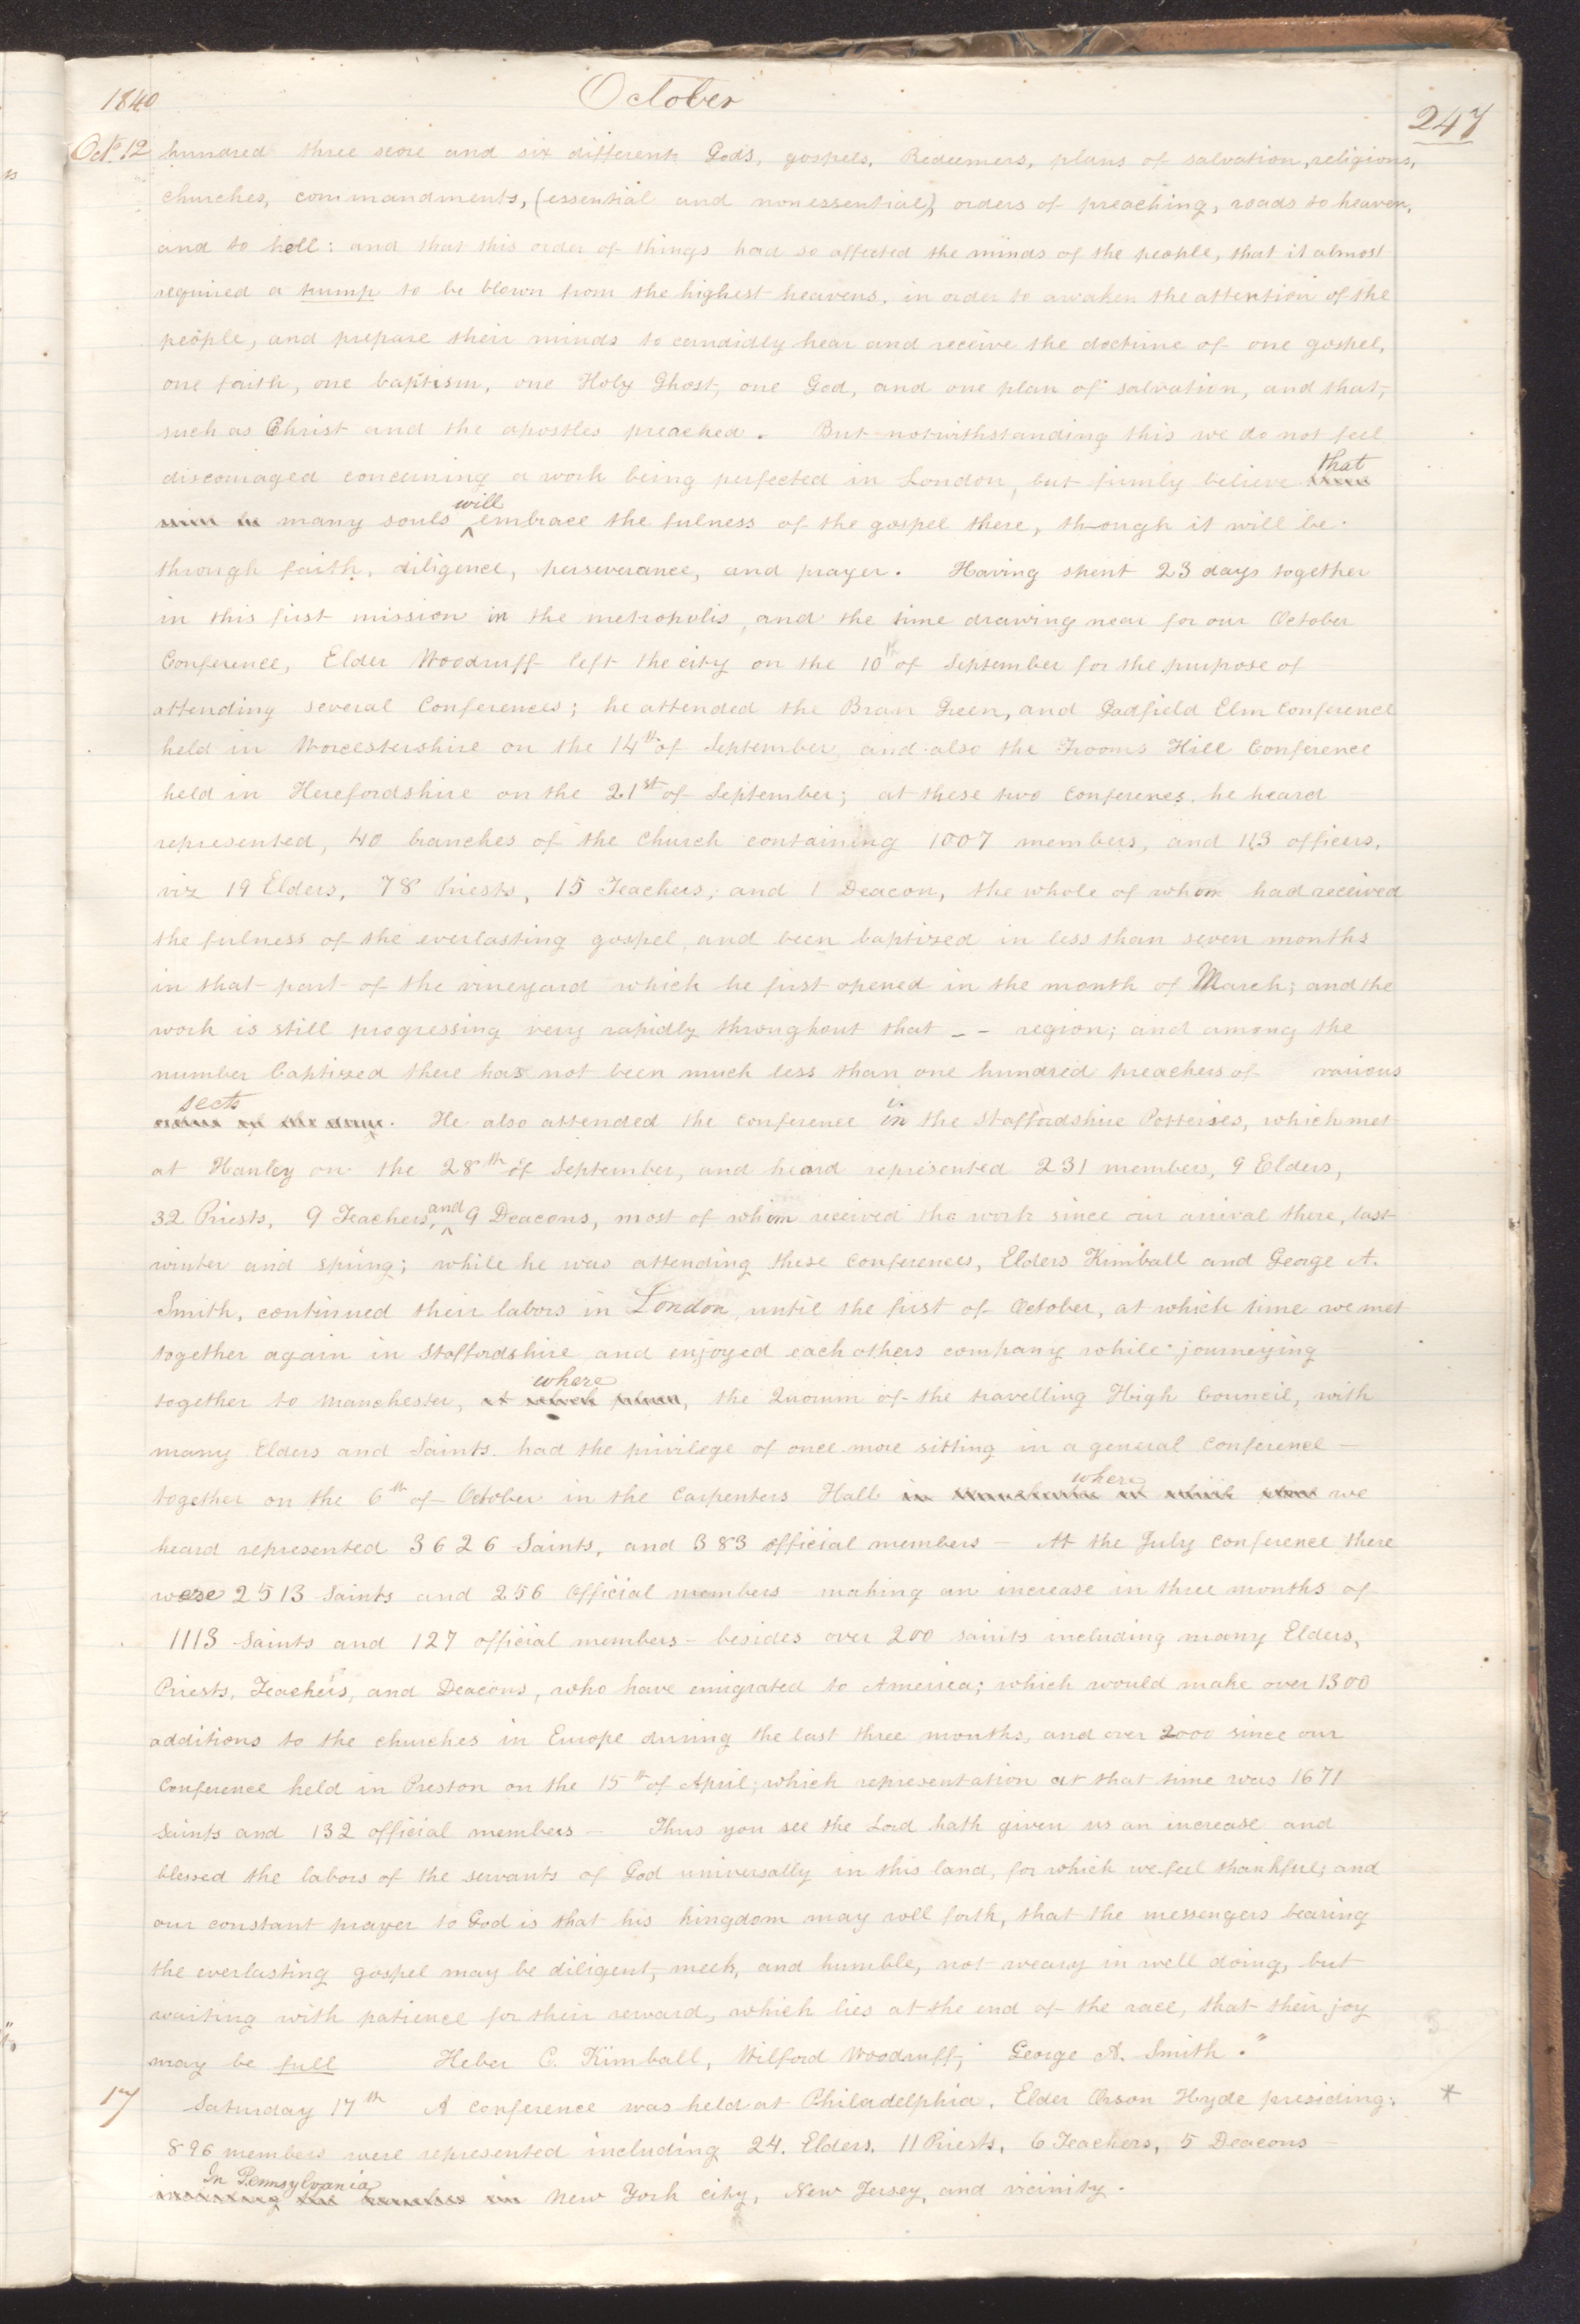 1840 October 247
Oct. 12 hundred three score and six different Gods, gospels, Redeemers, plans of salvation, religions,
churches, commandments, (essential and nonessential), orders of preaching, roads to heaven,
and to hell: and that this order of things had so affected the minds of the people, that it almost
required a trump to be blown from the highest heavens, in order to awaken the attention of the
people, and prepare their minds to candidly hear and receive the doctrine of one gospel,
one faith, one baptism, one Holy Ghost, one God, and one plan of salvation, and that,
such as Christ and the apostles preached. But notwithstanding this we do not feel
discouraged concerning a work being perfected in London, but firmly believe that
many souls will embrace the fulness of the gospel there, though it will be
through faith, diligence, perseverance, and prayer. Having spent 23 days together
in this first mission in the metropolis, and the time drawing near for our October
Conference, Elder Woodruff left the city on the 10th of September for the purpose of
attending several Conferences; he attended the Bran Green, and Gadfield Elm Conference
held in Worcestershire on the 14th of September, and also the Frooms Hill Conference
held in Herefordshire on the 21st of September; at these two conferences he heard
represented, 40 branches of the Church containing 1007 members, and 113 officers,
viz 19 Elders, 78 Priests, 15 Teachers, and 1 Deacon, the whole of whom had received
the fulness of the everlasting gospel, and been baptized in less than seven months
in that part of the vineyard which he first opened in the month of March; and the
work is still progressing very rapidly throughout that - - region; and among the
number baptized there has not been much less than one hundred preachers of various
sects. He also attended the conference in the Staffordshire Potteries, which met
at Hanley on the 28th of September, and heard represented 231 members, 9 Elders,
32 Priests, 9 Teachers, and 9 Deacons, most of whom received the work since our arrival there, last
winter and spring; while he was attending these conferences, Elders Kimball and George A.
Smith, continued their labors in London, until the first of October, at which time we met
together again in Staffordshire and enjoyed each others company while journeying
together to Manchester, at which place, where the Quorum of the travelling High Council, with
many Elders and Saints had the privilege of once more sitting in a general conference —
together on the 6th of October in the Carpenters Hall where we
heard represented 3626 Saints, and 383 official members — At the July conference there
were 2513 Saints and 256 Official members — making an increase in three months of
1113 Saints and 127 official members — besides over 200 saints including many Elders,
Priests, Teachers, and Deacons, who have emigrated to America; which would make over 1300
additions to the churches in Europe during the last three months, and over 2000 since our
Conference held in Preston on the 15th of April; which representation at that time was 1671
Saints and 132 official members — Thus you see the Lord hath given us an increase and
blessed the labors of the servants of God universally in this land, for which we feel thankful; and
our constant prayer to God is that his kingdom may roll forth, that the messengers bearing
the everlasting gospel may be diligent, meek, and humble, not weary in well doing, but
waiting with patience for their reward, which lies at the end of the race, that their joy
may be full Heber C. Kimball, Wilford Woodruff, George A. Smith."
17 Saturday 17th A conference was held at Philadelphia, Elder Orson Hyde presiding; *
896 members were represented including 24. Elders, 11 Priests, 6 Teachers, 5 Deacons
In Pennsylvania New York city, New Jersey, and vicinity.